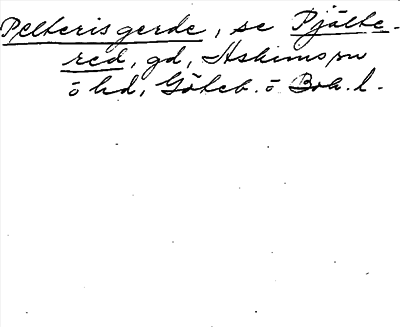 Pelterisgerde, se Pjälte-
red, gd, Askims sn
o hd, Göteb. o Boh. l.